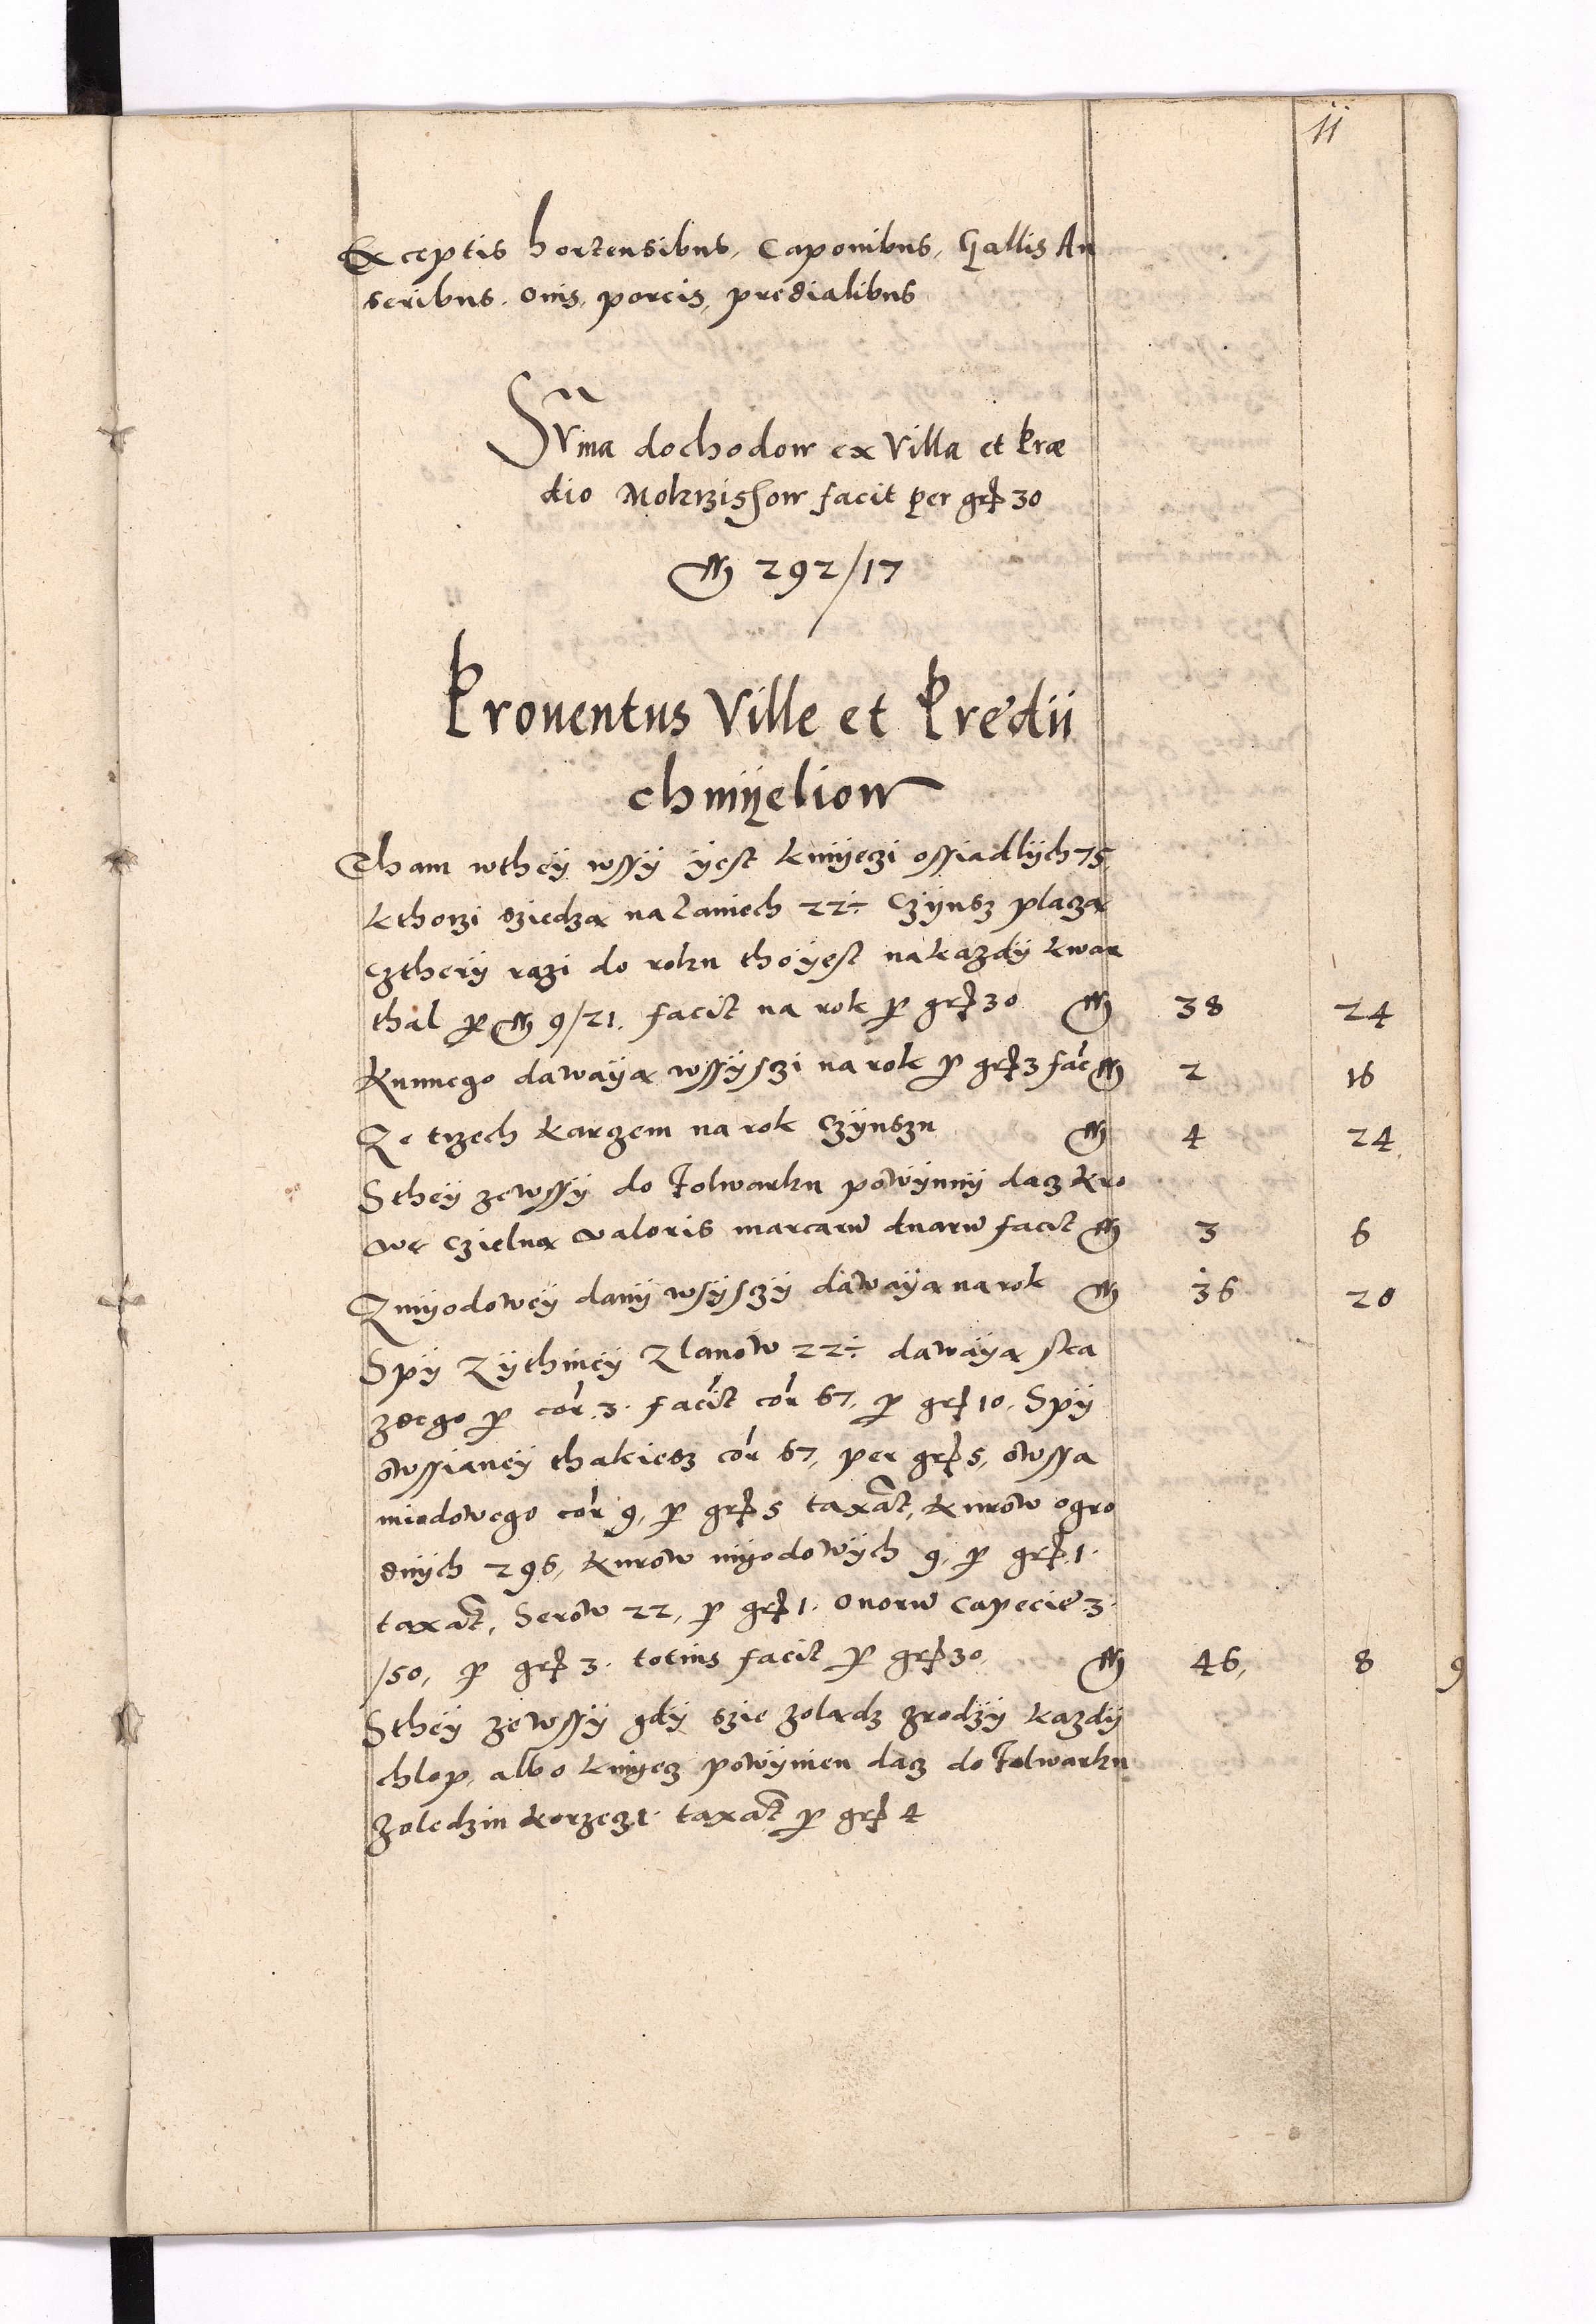 11
Exceptis hortensibus, Caponibus, Gallis An
seribus, Ovis, porcis, predialibus
Suma dochodow ex Villa et Præ
dio Mokrzisow facit per gr 30
M 292/17
Proventus Ville et Predii
chmÿeliow
Tham wtheÿ wssÿ ÿest kmÿeczi ossiadlÿch 75
kthorzi sziedza na Laniech 22÷ Czÿnsz placza
czterÿ razi do roku tho ÿest na kazdÿ kwar
thal p M 9/21, facit na rok p gr 30 M 38 24
Kunnego dawaÿa wssÿsczi na rok p gr 3 fac M 2 16
Ze trzech karczem na rok czÿnszu M 4 24
Stheÿ ze wssÿ do folwarku powÿnnÿ dacz kro
we czielna valoris marcaru duaru facit M 3 6
Z mÿodoweÿ danÿ wsÿsczÿ dawaÿa na rok M 36 20
Spÿ Zÿthneÿ Z lanow 22÷ dawaÿa sta
rzego p cor 3. facit cor 67, p gr 10. Spÿ
owssianeÿ thakiesz cor 67, per gr 5, owssa
miodowego cor 9, p gr 5 taxat, kurow ogro
dnÿch 296, kurow mÿodowÿch 9, p gr 1.
taxat, Serow 22, p gr 1. Ovoru Capecie 3
/50, p gr 3. totius facit p gr 30 M 46, 8 9
Stheÿ ze wssÿ gdÿ szie zoladz zrodzÿ kazdÿ
chlop, albo kmÿecz powÿnien dacz do folwarku
zoledzin korzecz 1. taxat p gr 4